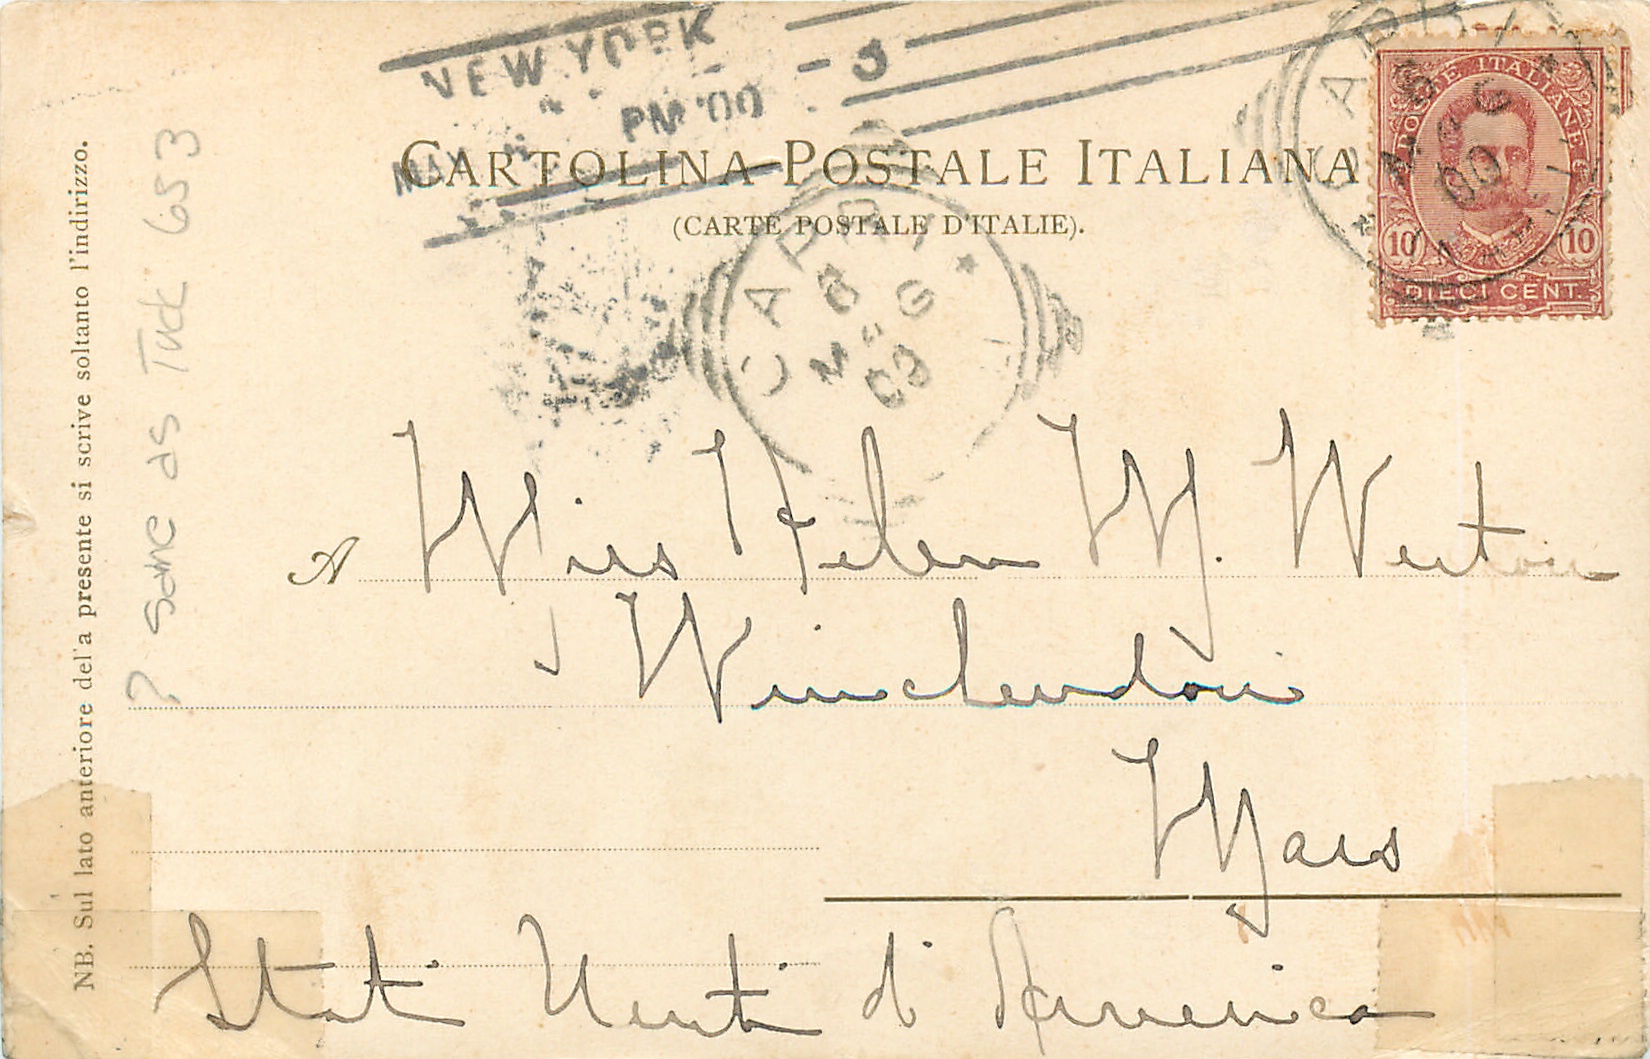 NEW YORK
PM '00
CARTOLINA POSTALE ITALIANA
(CARTE POSTALE D'ITALIE).
CAPRI
8
MAG
00
CAPRI
8
MAG
00
POSTE ITALIANE
10 10
DIECI CENT.
A Miss Helen M. Weston
Winchendon
Mass
Stati Uniti d'America
NB. Sul lato anteriore del a presente si scrive soltanto l'indirizzo.
? same as Tuck 653